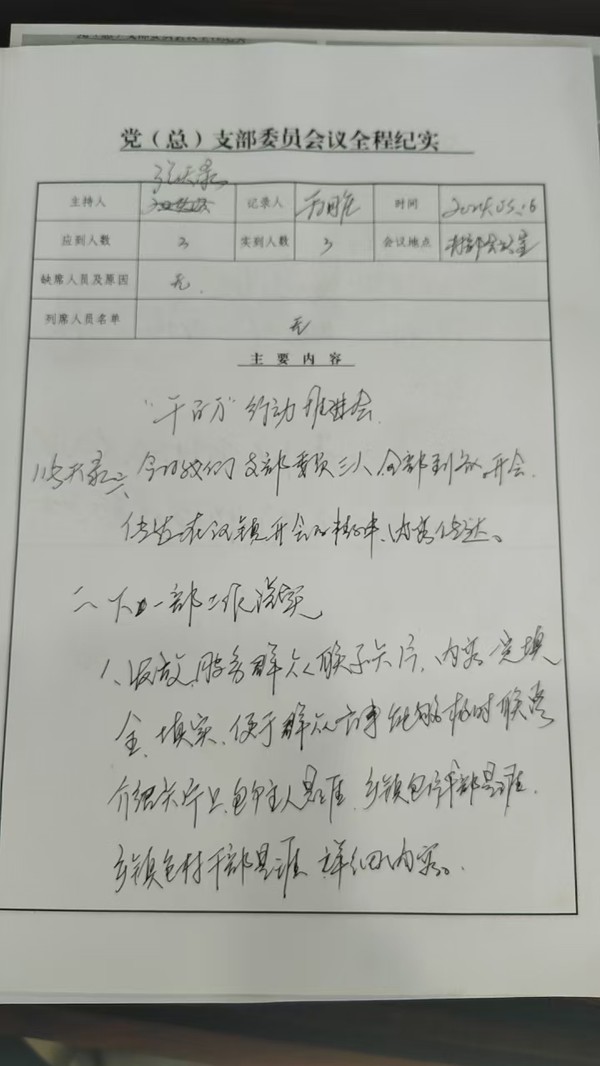 党（总）支部委员会议全程纪实
张天录
主持人 记录人 时间 2024.05.16
应到人数 3 实到人数 3 会议地点 村部会议室
缺席人员及原因 无.
列席人员名单 无
主要内容
“千百万”行动推进会.
张天录: 今日我们支部委员三人全部到齐, 开会.
传达 镇开会 精神, 内容传达。
二、下一部工作落实
1、发放服务群众联系卡片, 内容完填
全、填实, 便于群众有事能够及时联系
介绍卡片上, 包户主人是谁, 乡镇包 干部是谁.
乡镇包村干部是谁 详细内容。